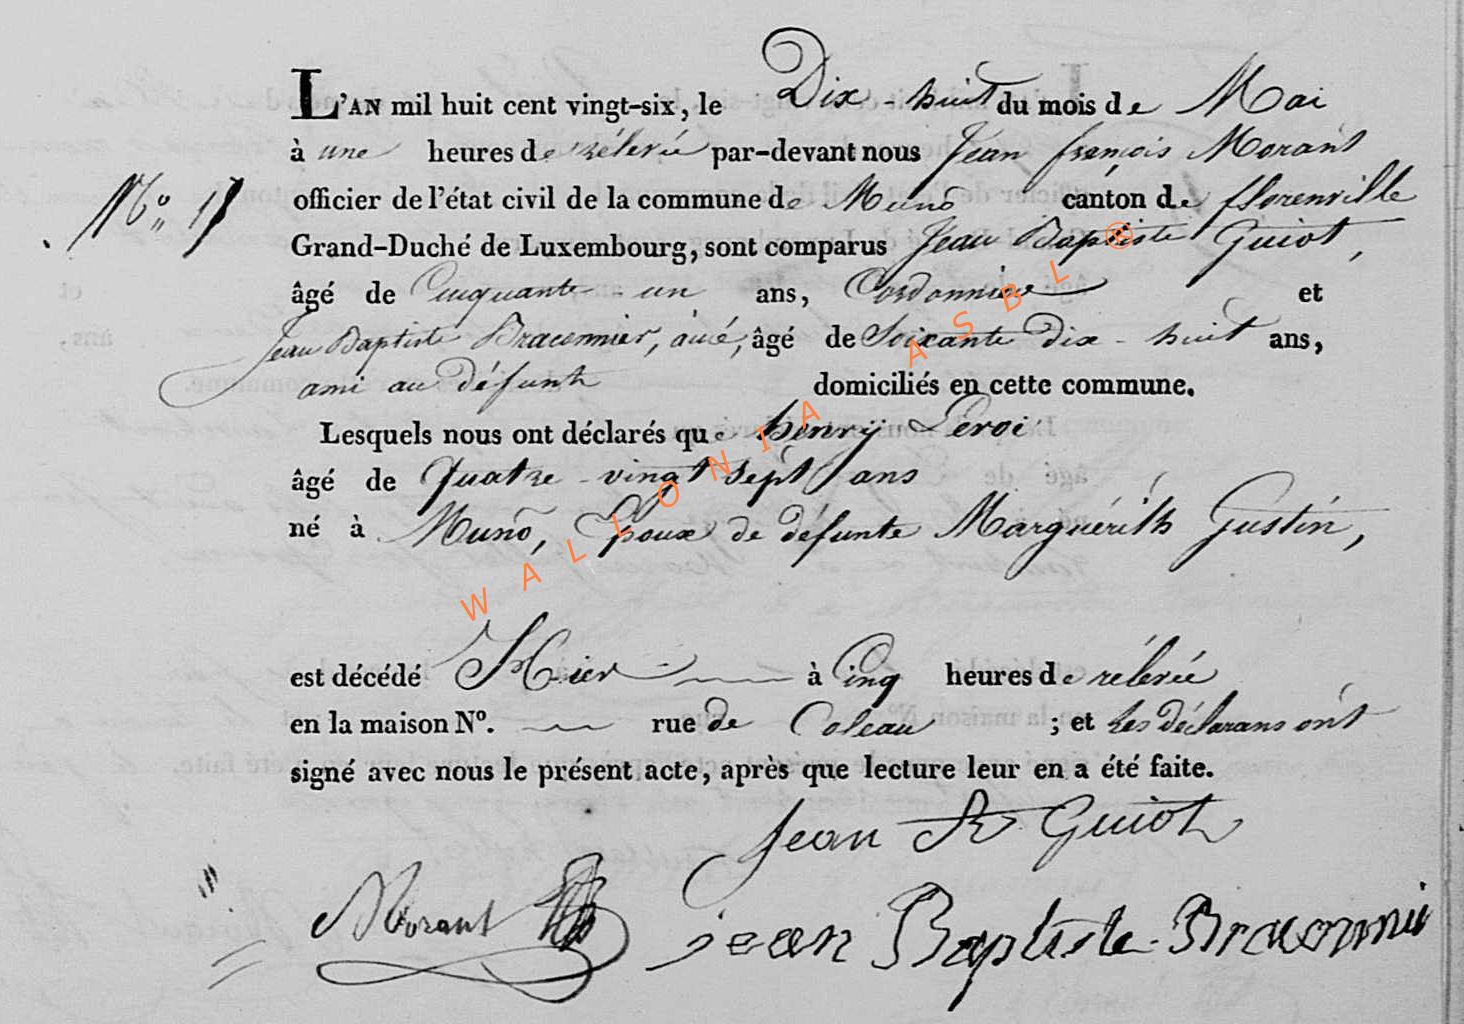 L'AN mil huit cent vingt-six, le Dix-huit du mois de Mai
à une heures de rélevée par-devant nous Jean françois Morant
officier de l'état civil de la commune de Muno canton de florenville
Nº 17
Grand-Duché de Luxembourg, sont comparus Jean Baptiste Guiot,
âgé de Cinquante-un ans, Cordonnier et
Jean Baptiste Braconnier, âgé de Soixante dix-huit ans,
ami au défunt domiciliés en cette commune.
Lesquels nous ont déclarés que henry Leroi
âgé de quatre-vingt sept ans
né à Muno, Epoux de défunte Marguérith Gustin,
est décédé Hier à Cinq heures de rélevée
en la maison Nº. rue de Coleau ; et les déclarans ont
signé avec nous le présent acte, après que lecture leur en a été faite.
Jean Bte Guiot
Morant
jean Baptiste Braconnier
WALLONIA ASBL ®